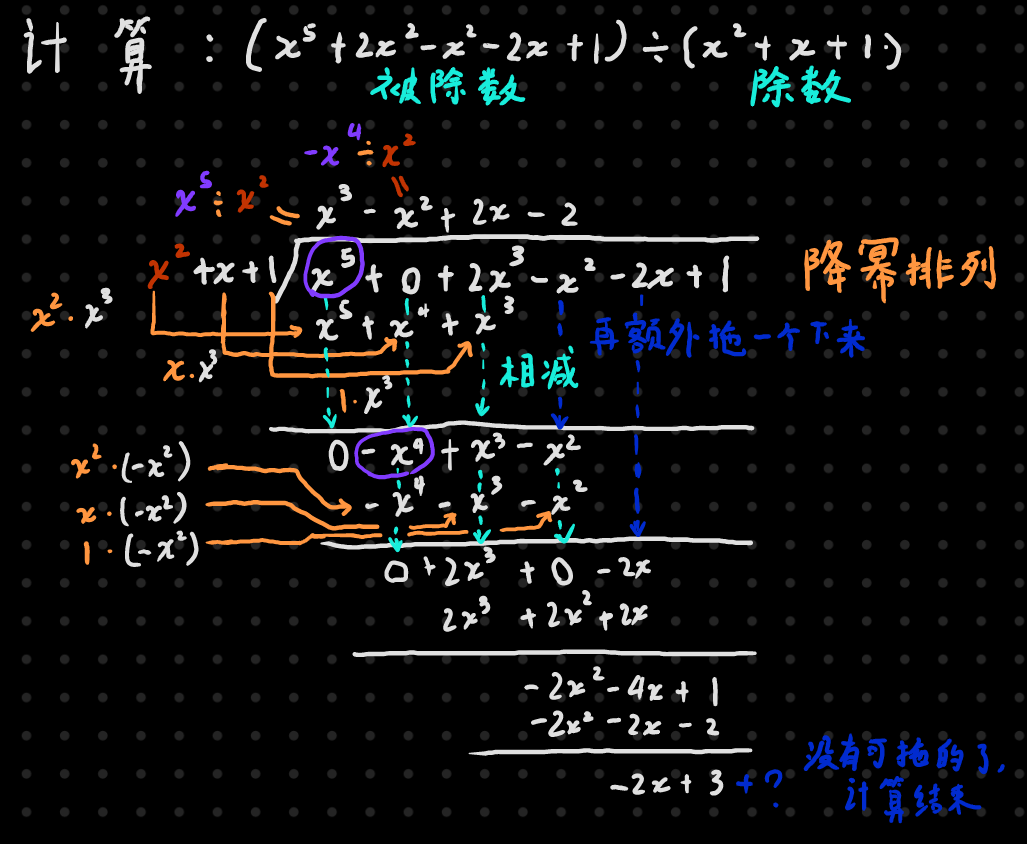 计算:(x⁵+2x²-x²-2x+1)÷(x²+x+1)
被除数 除数
-x⁴÷x²
x⁵÷x² = x³-x²+2x-2
x²+x+1 x⁵+0+2x³-x²-2x+1 降幂排列
x²·x³ x⁵+x⁴+x³ 再额外拖一个下来
x·x³ 相减
1·x³
0-x⁴+x³-x²
x²·(-x²)
-x⁴-x³-x²
x·(-x²)
1·(-x²)
0+2x³+0-2x
2x³+2x²+2x
-2x²-4x+1
-2x²-2x-2
-2x+3+? 没有可拖的了,
计算结束